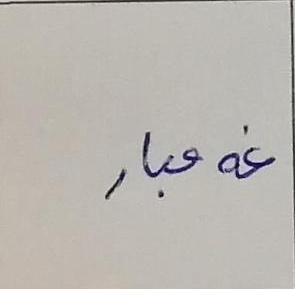 غه عبار